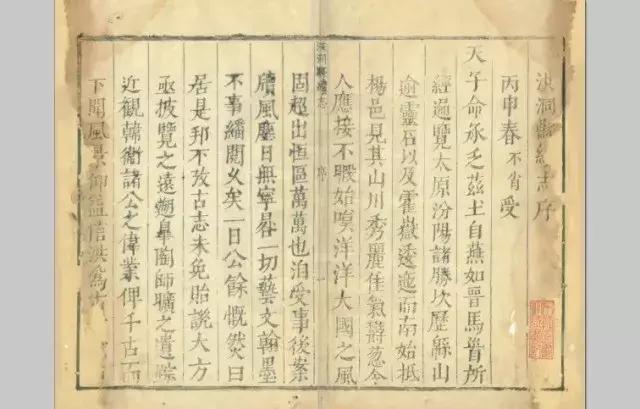 洪洞縣續志序
丙申春不肖受
天子命承乏茲土自燕如晉馬首所
經過覽太原汾陽諸勝坎歷縣山
逾靈石以及霍嶽透迤而南始抵
楊邑見其山川秀麗佳氣欝葱令
人應接不暇始嘆洋洋大國之風
洪洞縣續志 序
固超出恒區萬萬也洎受事後案
牘風塵日無寧晷一切藝文翰墨
不事繙閱乂矣一日公餘慨然曰
居是邦不攷古志未免貽譏大方
亟披覽之遠遡臯陶師曠之遺踪
近觀韓衞諸公之偉業俾千古而
下聞風景仰益信洪為